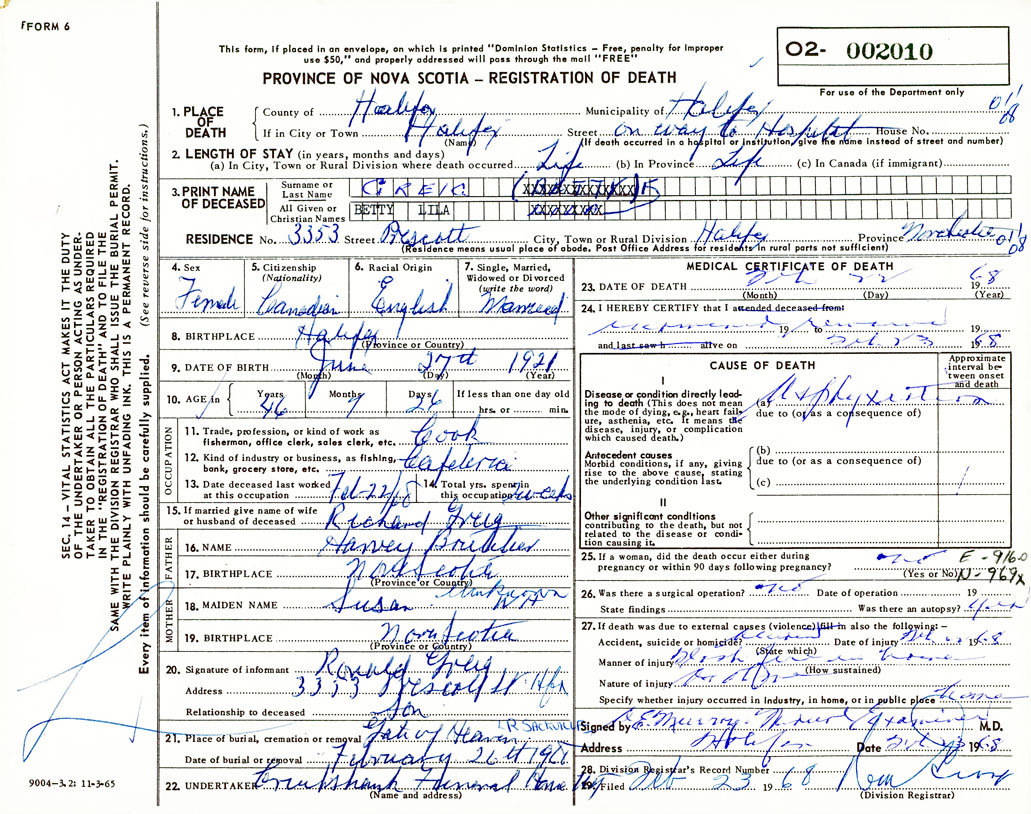 FORM 6
This form, if placed in an envelope, on which is printed "Dominion Statistics – Free, penalty for improper
use $50," and properly addressed will pass through the mail "FREE"
PROVINCE OF NOVA SCOTIA – REGISTRATION OF DEATH
02- 002010
For use of the Department only
SEC. 14 – VITAL STATISTICS ACT MAKES IT THE DUTY
OF THE UNDERTAKER OR PERSON ACTING AS UNDER-
TAKER TO OBTAIN ALL THE PARTICULARS REQUIRED
IN THE "REGISTRATION OF DEATH" AND TO FILE THE
SAME WITH THE DIVISION REGISTRAR WHO SHALL ISSUE THE BURIAL PERMIT.
WRITE PLAINLY WITH UNFADING INK. THIS IS A PERMANENT RECORD.
Every item of information should be carefully supplied. (See reverse side for instructions.)
1. PLACE OF DEATH County of Halifax Municipality of Halifax
If in City or Town Halifax Street on way to Hospital House No.
(Name) (If death occurred in a hospital or institution, give the name instead of street and number)
2. LENGTH OF STAY (in years, months and days)
(a) In City, Town or Rural Division where death occurred Life (b) In Province Life (c) In Canada (if immigrant)
3. PRINT NAME OF DECEASED Surname or Last Name GREIG
All Given or Christian Names BETTY LILA
RESIDENCE No. 3353 Street Prescott City, Town or Rural Division Halifax Province Nova Scotia
(Residence means usual place of abode. Post Office Address for residents in rural parts not sufficient)
4. Sex Female
5. Citizenship (Nationality) Canadian
6. Racial Origin English
7. Single, Married, Widowed or Divorced (write the word) Married
8. BIRTHPLACE Halifax
(Province or Country)
9. DATE OF BIRTH June 27th 1921
(Month) (Day) (Year)
10. AGE in Years 46 Months 7 Days 26 If less than one day old
hrs. or min.
OCCUPATION
11. Trade, profession or kind of work as Cook
fisherman, office clerk, sales clerk, etc.
12. Kind of industry or business, as fishing, Cafeteria
bank, grocery store, etc.
13. Date deceased last worked at this occupation Feb-22/68 14. Total yrs. spent in this occupation weeks
15. If married give name of wife or husband of deceased Richard Greig
FATHER
16. NAME Harvey
17. BIRTHPLACE Nova Scotia
(Province or Country)
MOTHER
18. MAIDEN NAME Susan Unknown
19. BIRTHPLACE Nova Scotia
(Province or Country)
20. Signature of informant Ronald Greig
Address 3353 Prescott St Hfx
Relationship to deceased Son
21. Place of burial, cremation or removal Gate of Heaven LR SACKVILLE
Date of burial or removal February 26th 1968
22. UNDERTAKER Cruikshank Funeral Home
(Name and address)
9004–3.2: 11-3-65
MEDICAL CERTIFICATE OF DEATH
23. DATE OF DEATH Feb 22 1968
(Month) (Day) (Year)
24. I HEREBY CERTIFY that I attended deceased from:
examined remains 19 to 19
and last saw h alive on Feb 23 1968
CAUSE OF DEATH
Approximate interval between onset and death
I
Disease or condition directly leading to death (This does not mean the mode of dying, e.g., heart failure, asthenia, etc. It means the disease, injury, or complication which caused death.)
(a) Asphyxiation
due to (or as a consequence of)
Antecedent causes
Morbid conditions, if any, giving rise to the above cause, stating the underlying condition last.
(b)
due to (or as a consequence of)
(c)
II
Other significant conditions
contributing to the death, but not related to the disease or condition causing it.
25. If a woman, did the death occur either during pregnancy or within 90 days following pregnancy? No
(Yes or No)
E-9160
N-969x
26. Was there a surgical operation? No Date of operation 19
State findings Was there an autopsy?
27. If death was due to external causes (violence) fill in also the following:–
Accident, suicide or homicide? Accident Date of injury Feb 22 1968
(State which)
Manner of injury fire in home
(How sustained)
Nature of injury
Specify whether injury occurred in industry, in home, or in public place home
Signed by Murray Medical Examiner M.D.
Address Halifax Date Feb 23 1968
28. Division Registrar's Record Number
29. Filed Feb 23 1968
(Division Registrar)